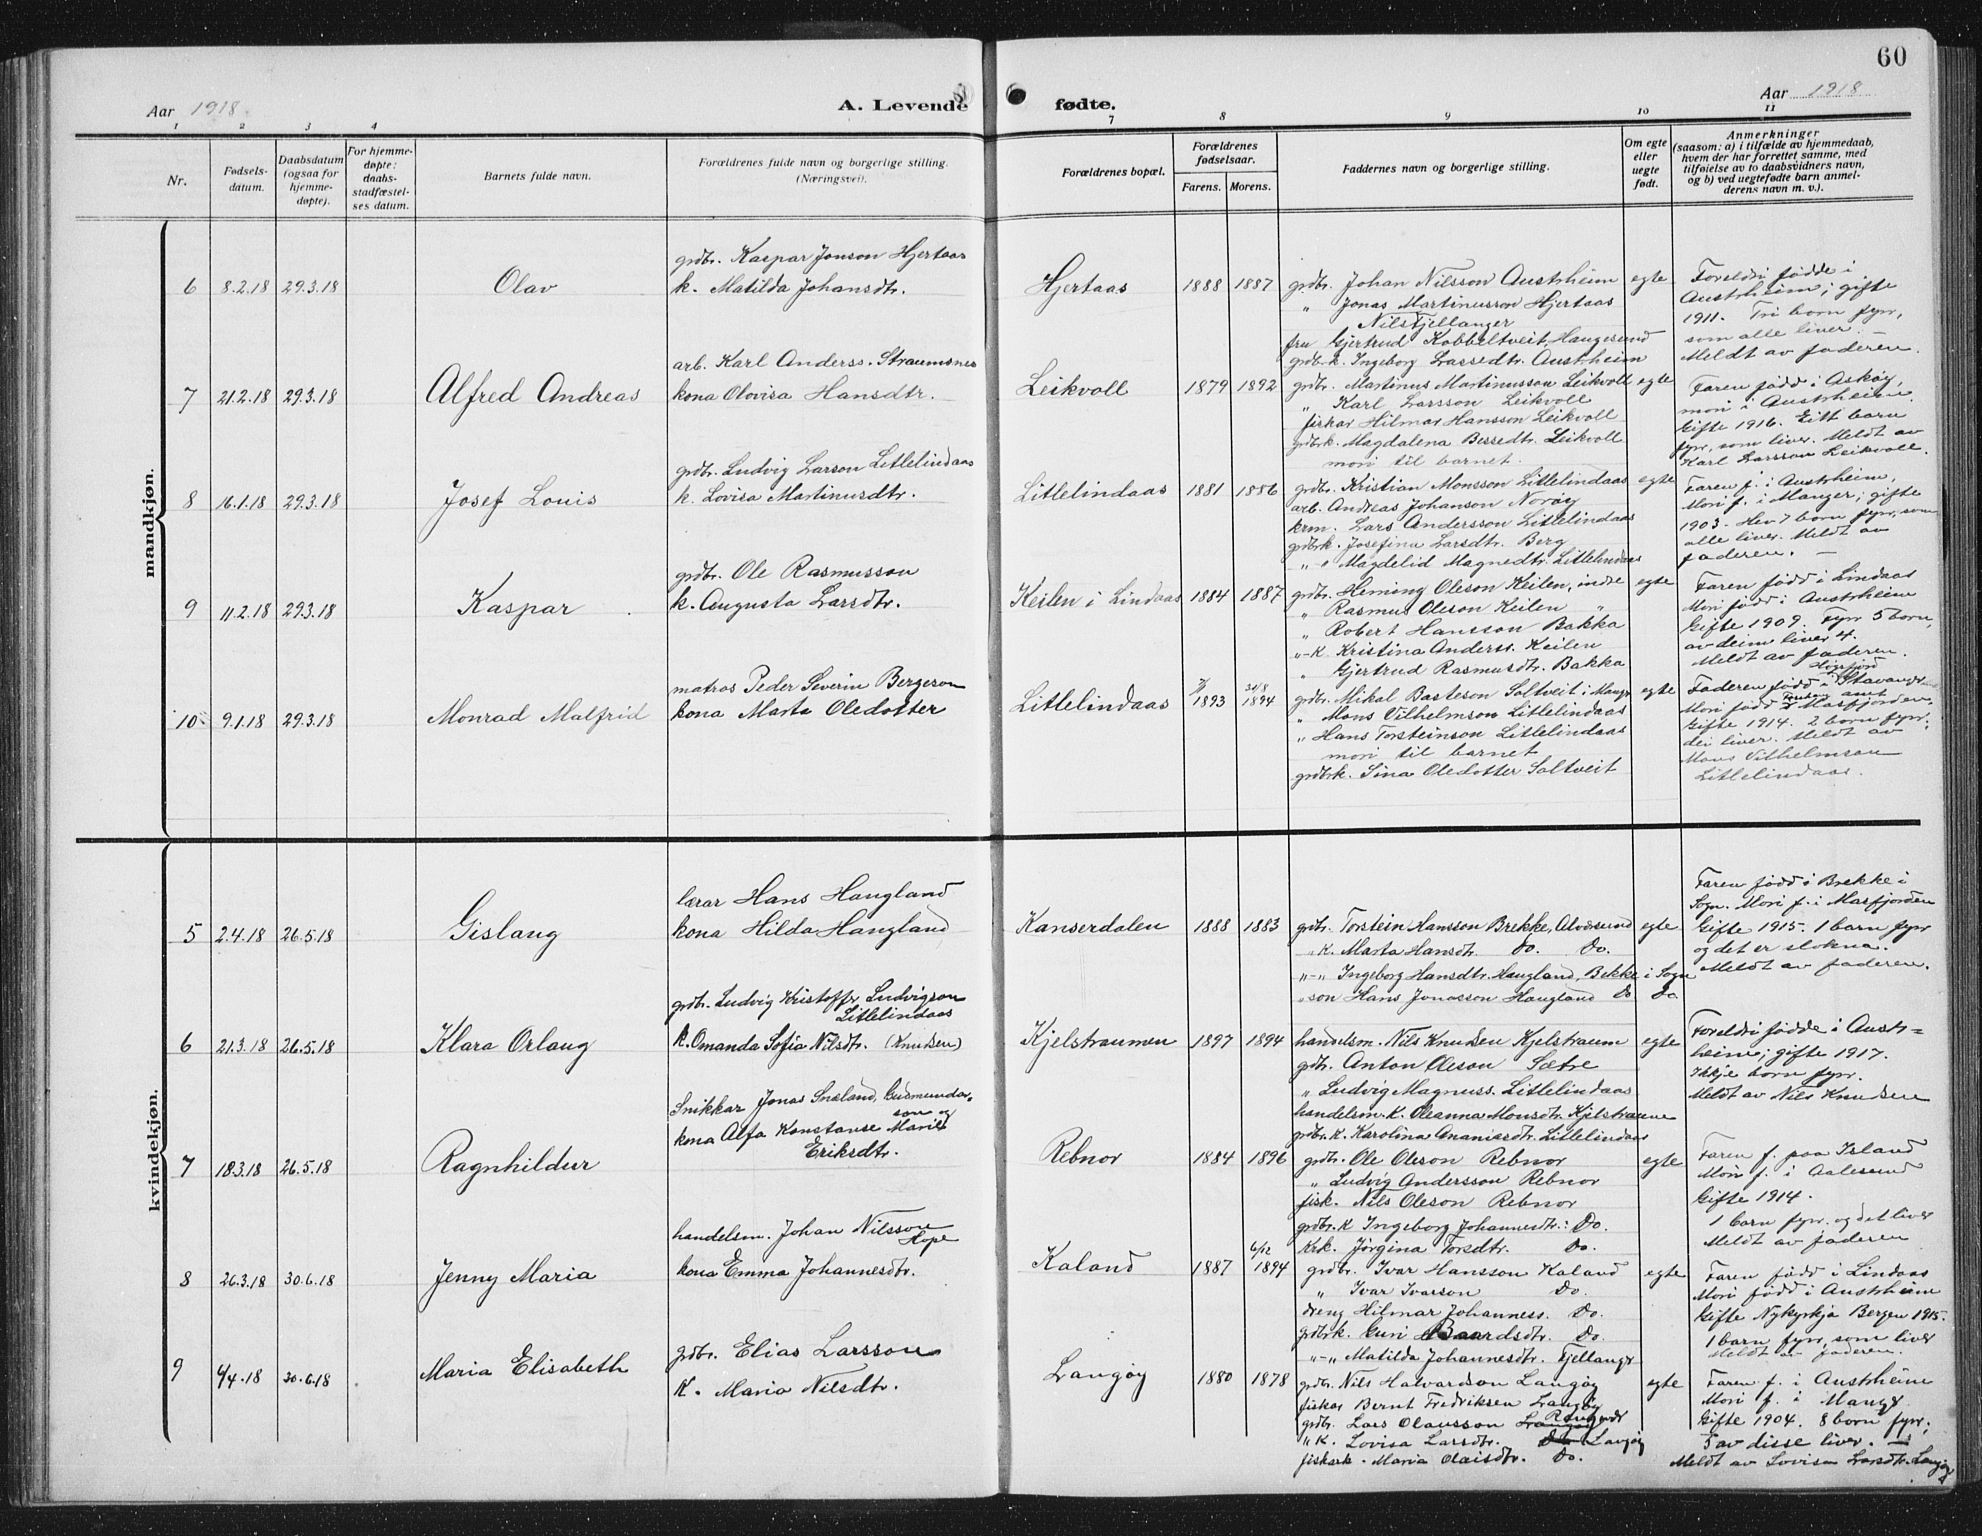 60
Aar 1918.
A. Levende fødte.
Aar 1918
1 2 3 4 7 8 9 10 11
Nr.
Fødsels-
datum.
Daabsdatum
(ogsaa for
hjemme-
døpte).
For hjemme-
døpte:
daabs-
stadfæstel-
ses datum.
Barnets fulde navn.
Forældrenes fulde navn og borgerlige stilling.
(Næringsvei).
Forældrenes bopæl.
Forældrenes
fødselsaar.
Farens. Morens.
Faddernes navn og borgerlige stilling.
Om egte
eller
uegte
født.
Anmerkninger
(saasom: a) i tilfælde av hjemmedaab,
hvem der har forrettet samme, med
tilføielse av to daabsvidners navn,
og b) ved uegtefødte barn anmel-
derens navn m. v.).
mandkjøn.
6 8.2.18 29.3.18 Olav
grdbr. Kaspar Jonson Hjertaas
k. Matilda Johansdtr.
Hjertaas 1888 1887
grdbr. Johan Nilsson Austrheim
" Jonas Martinusson Hjertaas
Nils Fjellanger
fru Gjertrud Kobbeltveit, Haugesund
grdbr.k. Ingeborg Lassedtr. Austrheim
egte
Foreldri fødde i
Austrheim; gifte
1911. Tri born fyrr,
som alle liver. –
Meldt av faderen.
7 21.2.18 29.3.18 Alfred Andreas
arb. Karl Anderss. Straumsnes
kona Olovisa Hansdtr.
Leikvoll 1879 1892
grdbr. Martinus Martinusson Leikvoll
" Karl Larsson Leikvoll
fiskar Hilmar Hansson Leikvoll
grdbrk. Magdalena Bessedtr. Leikvoll
mori til barnet.
egte
Faren fødd i Askøy,
mori i Austrheim
Gifte 1916. Eitt barn
fyrr, som liver. Meldt av
Karl Larsson Leikvoll.
8 16.1.18 29.3.18 Josef Louis
grdbr. Ludvig Larson Litlelindaas
k. Lovisa Martinusdtr.
Litlelindaas 1881 1886
grdbr. Kristian Monsson Litlelindaas
arb. Andreas Johanson Norøy
krm. Lars Andersson Litlelindaas
grdbrk. Josefina Larsdtr. Berg
" " Magdelid Magnedtr. Litlelindaas
egte
Faren f. i Austrheim,
Mori f. i Manger; gifte
1903. Hev 7 born fyrr, som
alle liver. Meldt av
faderen. –
9 11.2.18 29.3.18 Kaspar
grdbr. Ole Rasmusson
k. Augusta Larsdtr.
Keilen i Lindaas 1884 1887
grdbr. Heming Oleson Keilen, indre
" Rasmus Oleson Keilen "
" Robert Hansson Bakka
"-k Kristina Anderss. Keilen
" Gjertrud Rasmusdtr. Bakka
egte
Faren fødd i Lindaas
Mori fødd i Austrheim
Gifte 1909. Fyrr 5 born,
av deim liver 4.
Meldt av faderen.
10 9.1.18 29.3.18 Monrad Malfrid
matros Peder Severin Bergeson
kona Marta Oledotter
Litlelindaas 1893 1894
grdbr. Mikal Basteson Soltveit i Mangr
" Mons Vilhelmson Litlelindaas
" Hans Torsteinson Litlelindaas
mori til barnet
grdbrk. Sina Oledotter Soltveit
egte
Faderen fødd i Stavanger
amt
Mori fødd i Masfjorden,
Gifte 1914. 2 born fyrr,
dei liver. Meldt av
Mons Vilhelmson
Litlelindaas.
kvindekjøn.
5 2.4.18 26.5.18 Gislaug
lærar Hans Haugland
kona Hilda Haugland
Kanserdalen 1888 1883
grdbr. Torstein Hansson Brekke, Alversund
"k. Marta Hansdtr. Do. Do.
"-" Ingeborg Hansdtr. Haugland, Bekke i Sogn
"son Hans Jonasson Haugland Do Do.
egte
Faren fødd i Brekke i
Sogn. Mori f. i Masfjorden
Gifte 1915. 1 barn fyrr
og det er slokna.
Meldt av faderen.
6 21.3.18 26.5.18 Klara Orlaug
grdbr. Ludvig Kristoffr Ludvigson
Litlelindaas
k. Omanda Sofia Nilsdtr. (Knudsen)
Kjelstraumen 1897 1894
handelsm. Nils Knudsen Kjelstraum
grdbr. Anton Oleson Sætre
" Ludvig Magnuss. Litlelindaas
handelsm. k. Oleanna Monsdtr. Kjelstraume
grdbr. k. Karolina Ananiasdtr. Litlelindaas
egte
Foreldri fødde i Austr=
heim; gifte 1917.
Ikkje born fyrr.
Meldt av Nils Knudsen
7 18.3.18 26.5.18 Ragnhildur
Snikkar Jonas Snæland, Gudmunda-
son og
kona Alfa Konstanse Marie
Eriksdtr.
Rebnor 1884 1896
grdbr. Ole Oleson Rebnor
" Ludvig Andersson Rebnor
fisk. Nils Oleson Rebnor
grdbr. k Ingeborg Johannesdtr. Do.
Krk. Jörgina Torsdtr. Do.
egte
Faren f. paa Island
Mori f. i Aalesund
Gifte 1914.
1 barn fyrr og det liver
Meldt av faderen
8 26.3.18 30.6.18 Jenny Maria
handelsm. Johan Nilsson
Hope
kona Emma Johannesdtr.
Kaland 1887 6/12 1894
grdbr. Ivar Hansson Kaland
" Ivar Ivarson Do.
dreng Hilmar Johanness. Do.
grdbrk. Guri Baardsdtr. Do.
"-" Matilda Johannesdtr. Fjellangr
egte
Faren fødd i Lindaas
Mori fødd i Austrheim
Gifte Nykyrkja Bergen 1915.
1 barn fyrr, som liver
Meldt av faderen.
9 4/4.18 30.6.18 Maria Elisabeth
grdbr. Elias Larsson
K. Maria Nilsdtr.
Langøy 1880 1878
grdbr. Nils Halvardson Langøy
fiskar Bernt Fredriksen Langøy
grdbr. Lars Olausson
"k. Lovisa Larsdtr. Do Langøy
fiskark. Maria Olaisdtr. Do.
egte
Faren f. i Austrheim
Mori f. i Mangr
Gifte 1904. 8 born fyrr;
7 av disse liver. –
Meldt av Lovisa Larsdtr. Langøy